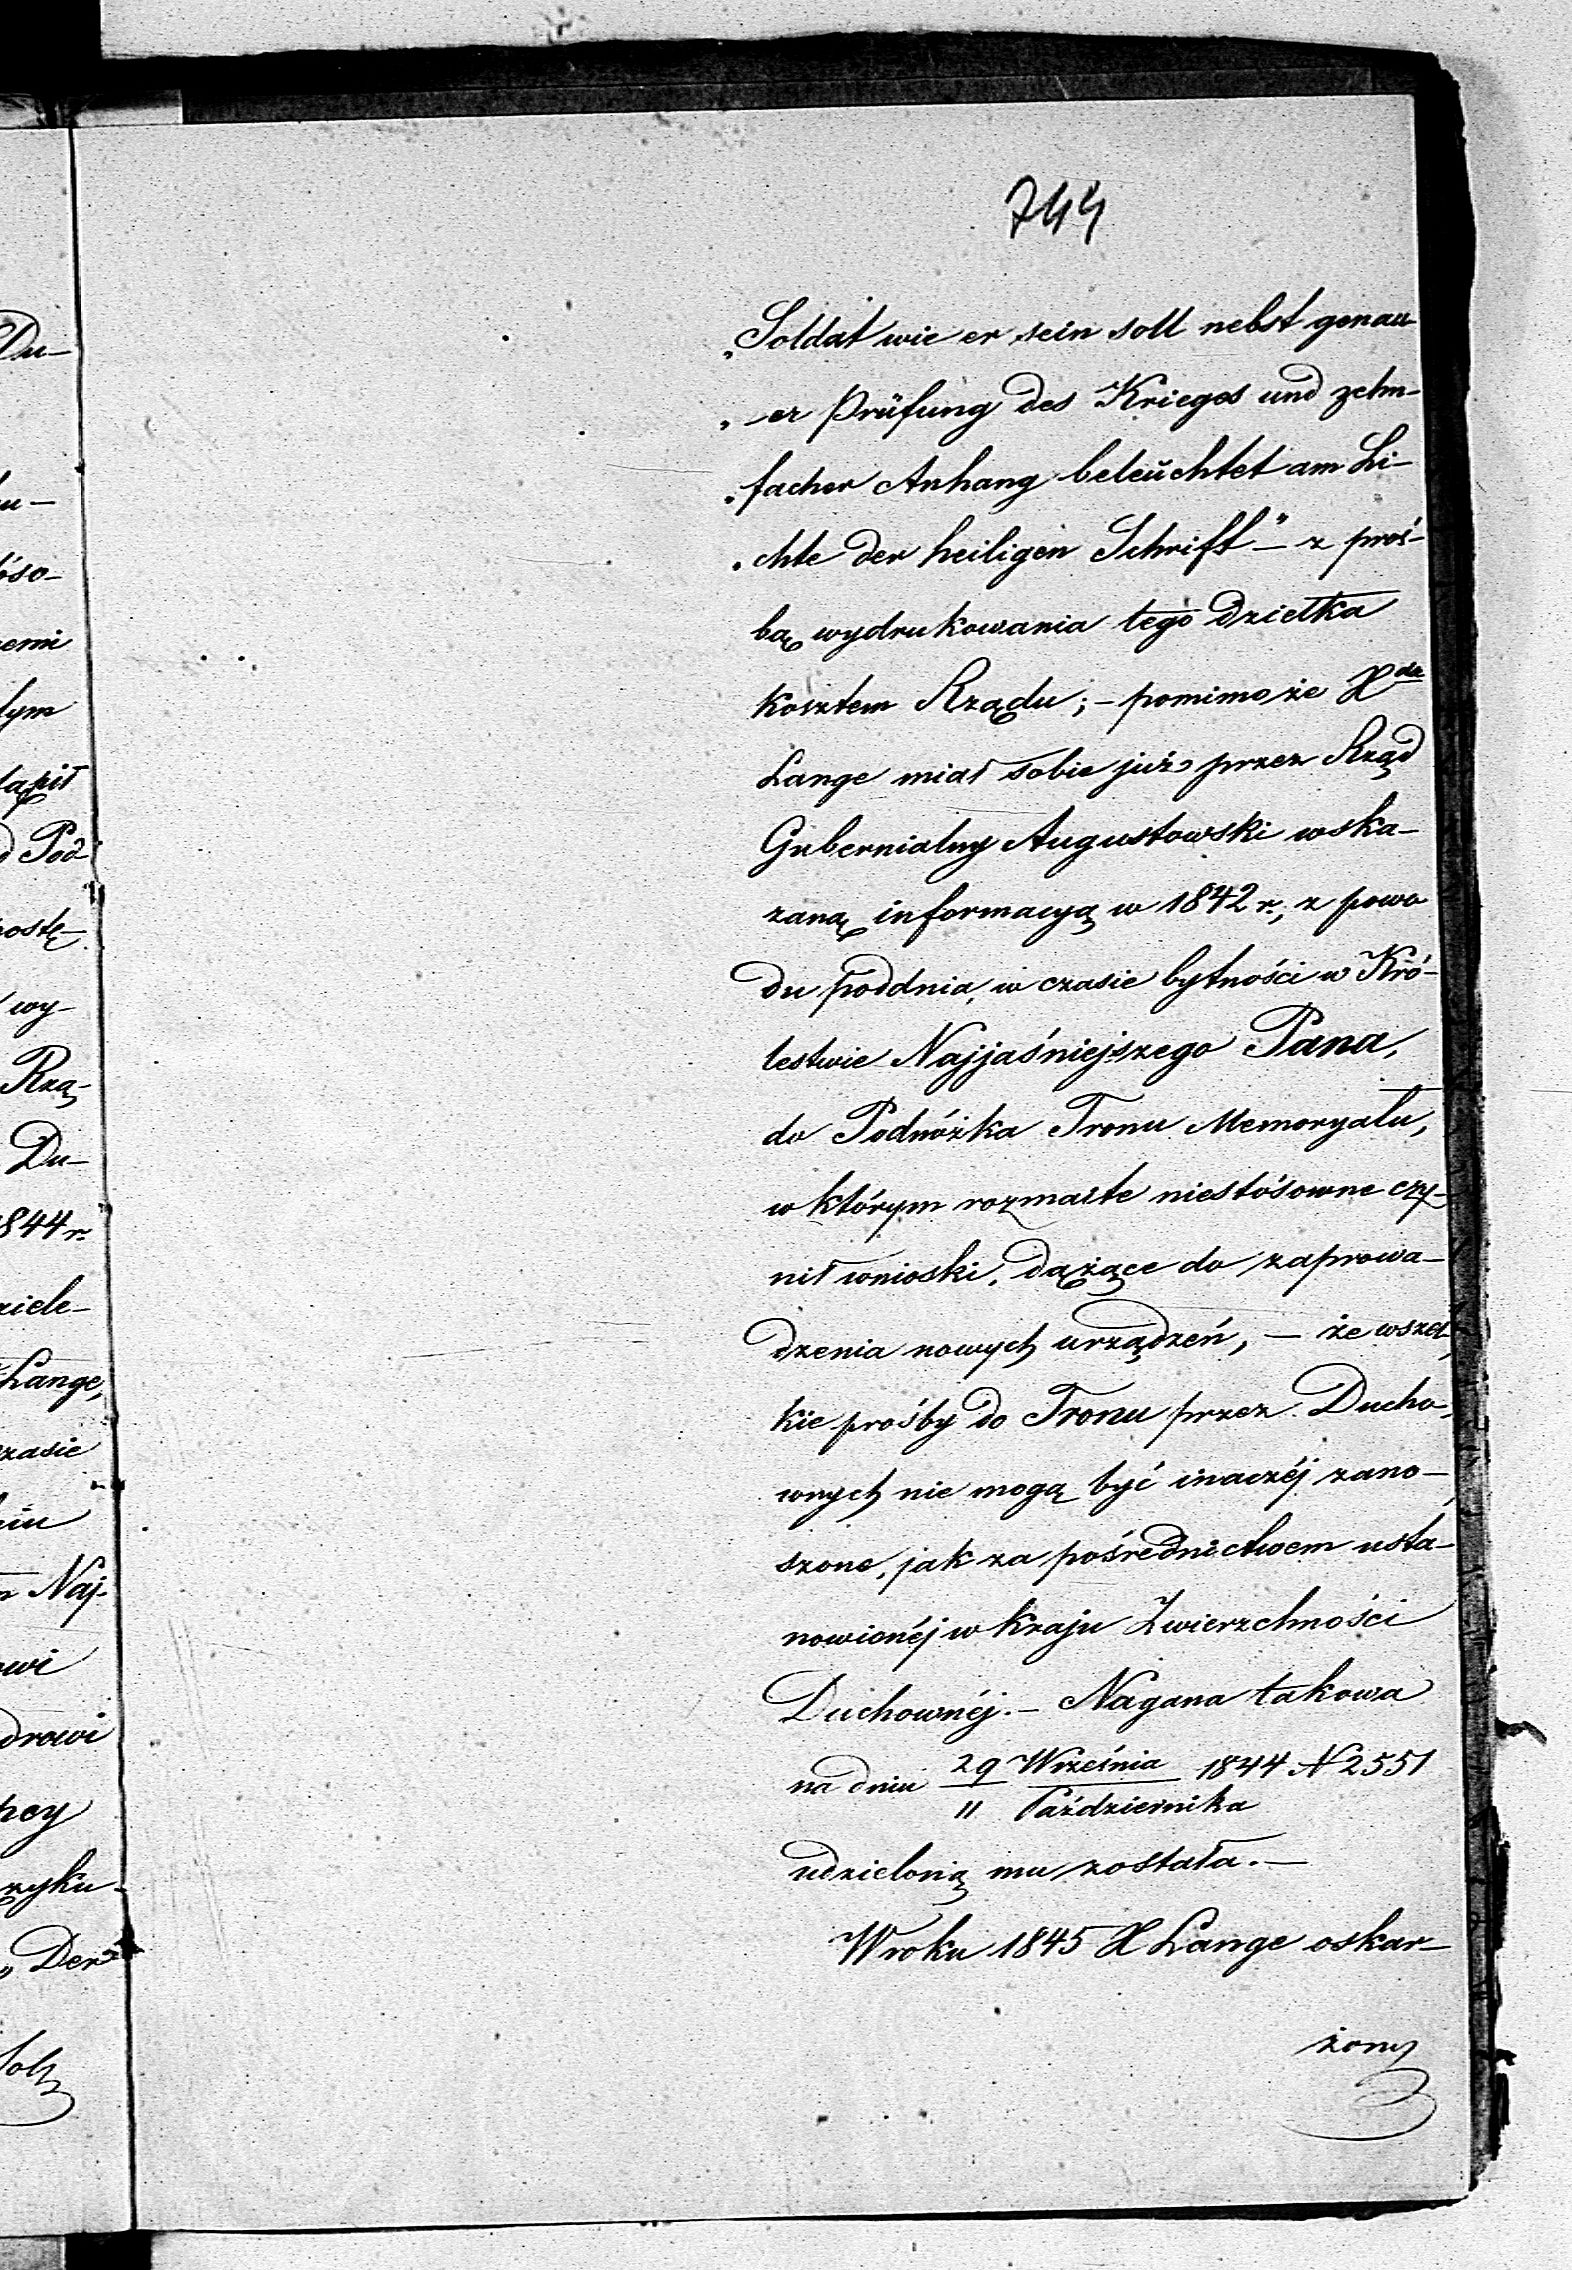 744
„Soldat wie er sein soll nebst genau
„–er Prüfung des Krieges und zehn–
„facher Anhang beleŭchtet am Li–
„chte der heiligen Schrift"– z proś–
bą wydrukowania tego dziełka
kosztem Rządu; – pomimo że Xdz
Lange miał sobie już przez Rząd
Gubernialny Augustowski wska–
zaną informacyą w 1842 r., z powo
du poddnia, w czasie bytności w Kró–
lestwie Najjaśniejszego Pana,
do Podnóżka Tronu Memoryału,
w którym rozmaite niestósowne czy–
nił wnioski, dążące do zaprowa–
dzenia nowych urządzeń, – że wszel
kie prośby do Tronu przez Ducho–
wnych nie mogą być inaczéj zano–
szone, jak za pośrednictwem usta–
nowionéj w kraju Zwierzchności
Duchownéj. – Nagana takowa
na dniu 29 Września 1844 N 2551
11 Października
udzieloną mu została. –
W roku 1845 X Lange oskar–
żony
Du–
u–
óso–
emi
łym
łąpił
d Pod
postę–
wy–
Rzą–
Du–
1844 r.
ziele–
Lange,
czasie
niu
m Naj–
owi
drowi
pcy
zyku–
„Der
Sol